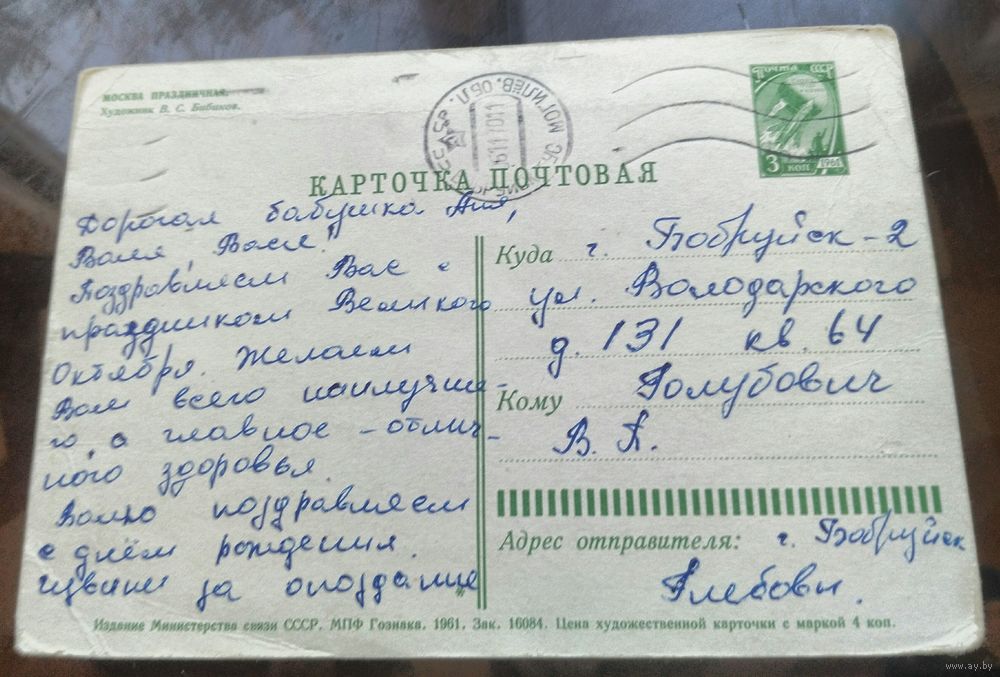 МОСКВА ПРАЗДНИЧНАЯ.
Художник В. С. Бибиков.
МОГИЛЕВ. ОБЛ.
ПОЧТА СССР
3 КОП
1961
КАРТОЧКА ПОЧТОВАЯ
Дорогая бабушка Аня,
Валя, Вася!
Поздравляем Вас с
праздником Великого
Октября. Желаем
Вам всего наилучше-
го, а главное – отлич-
ного здоровья.
Валю поздравляем
с днём рождения.
Извини за опоздание
Куда г. Бобруйск-2
ул. Володарского
д. 131 кв. 64
Кому Голубович
В. А.
Адрес отправителя: г. Бобруйск
Глебовы.
Издание Министерства связи СССР. МПФ Гознака. 1961. Зак. 16084. Цена художественной карточки с маркой 4 коп.
www.ay.by